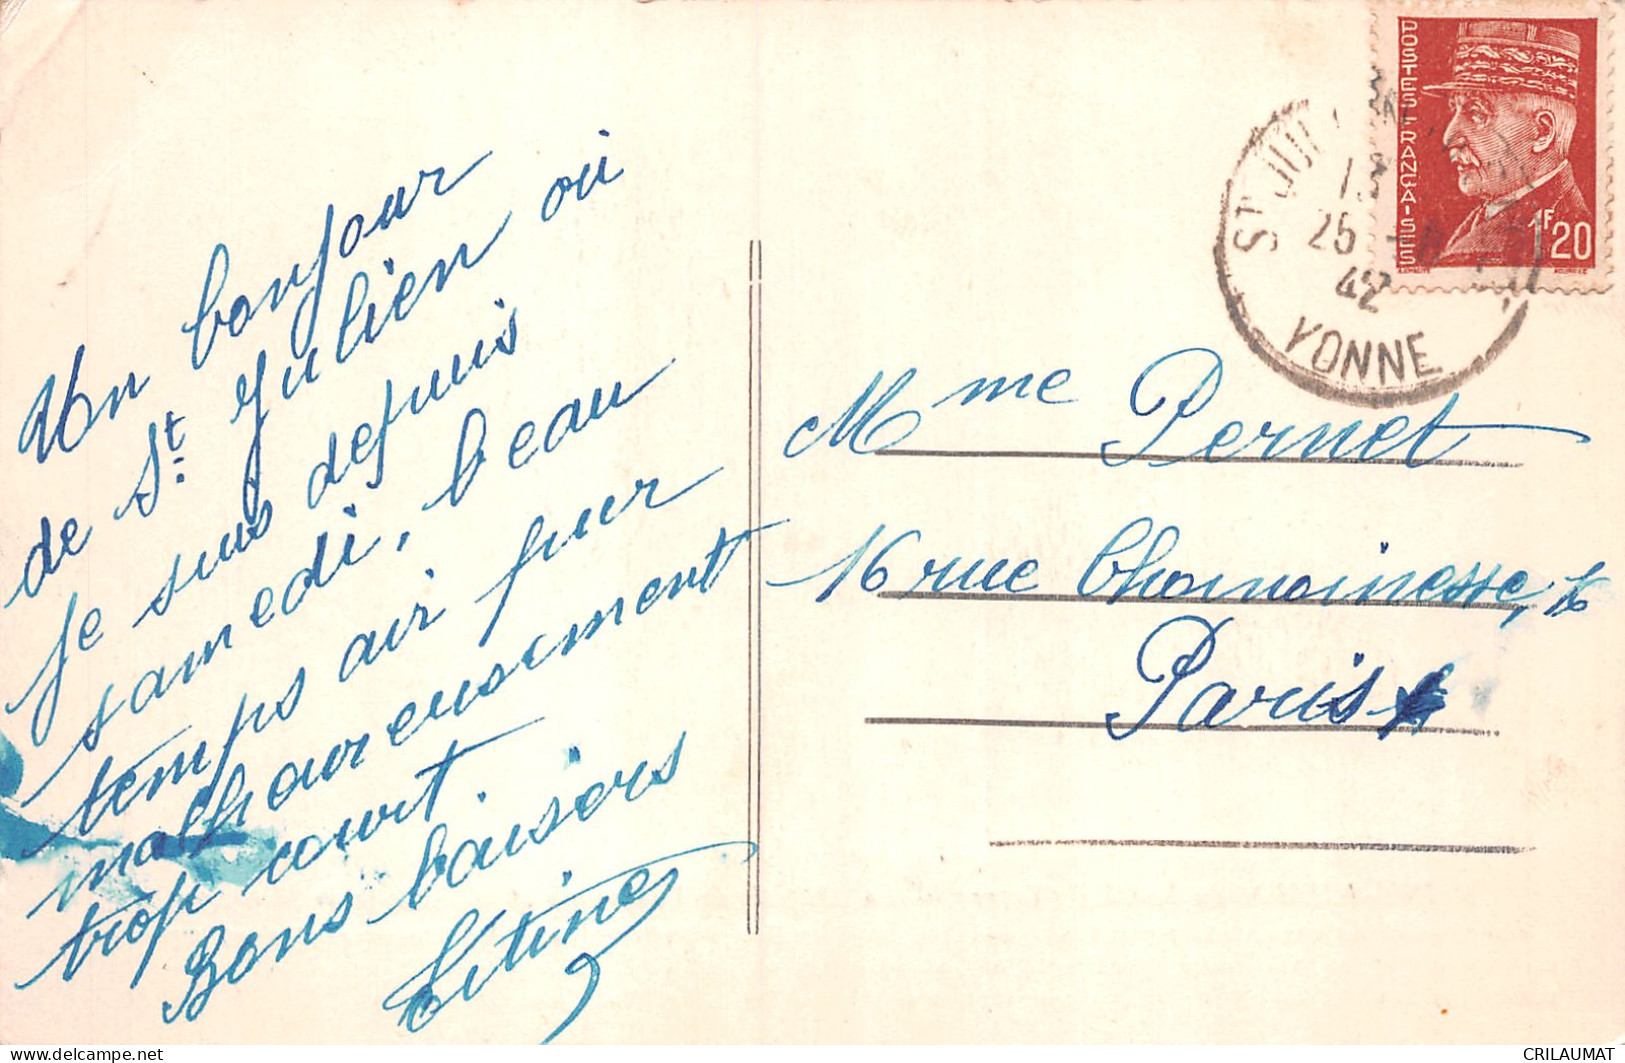 Un bonjour
de St. Julien où
je suis depuis
samedi, beau
temps air pur
malheureusement
trop court.
Bons baisers
Titine
POSTES FRANÇAISES
1F20
ST JUL
13
25
42
YONNE
Mme Pernet
16 rue Chanoinesse,
Paris
delcampe.net
CRILAUMAT